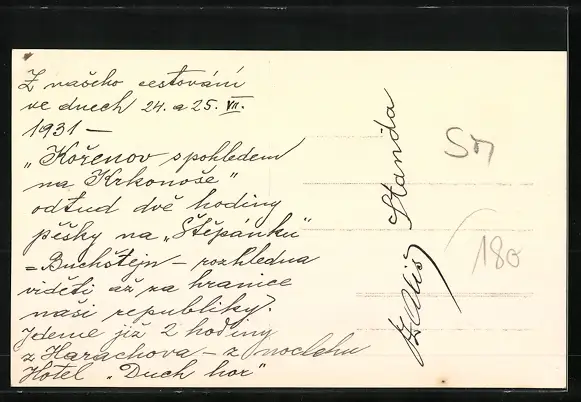 Z našeho cestování
ve dnech 24. a 25. VII.
1931 —
"Kořenov s pohledem
na Krkonoše"
odtud dvě hodiny
pěšky na "Štěpánku"
= Buchštejn — rozhledna
viděti až za hranice
naší republiky.
Jdeme již 2 hodiny
z Harachova — z noclehu
Hotel "Duch hor"
Standa
SM
180